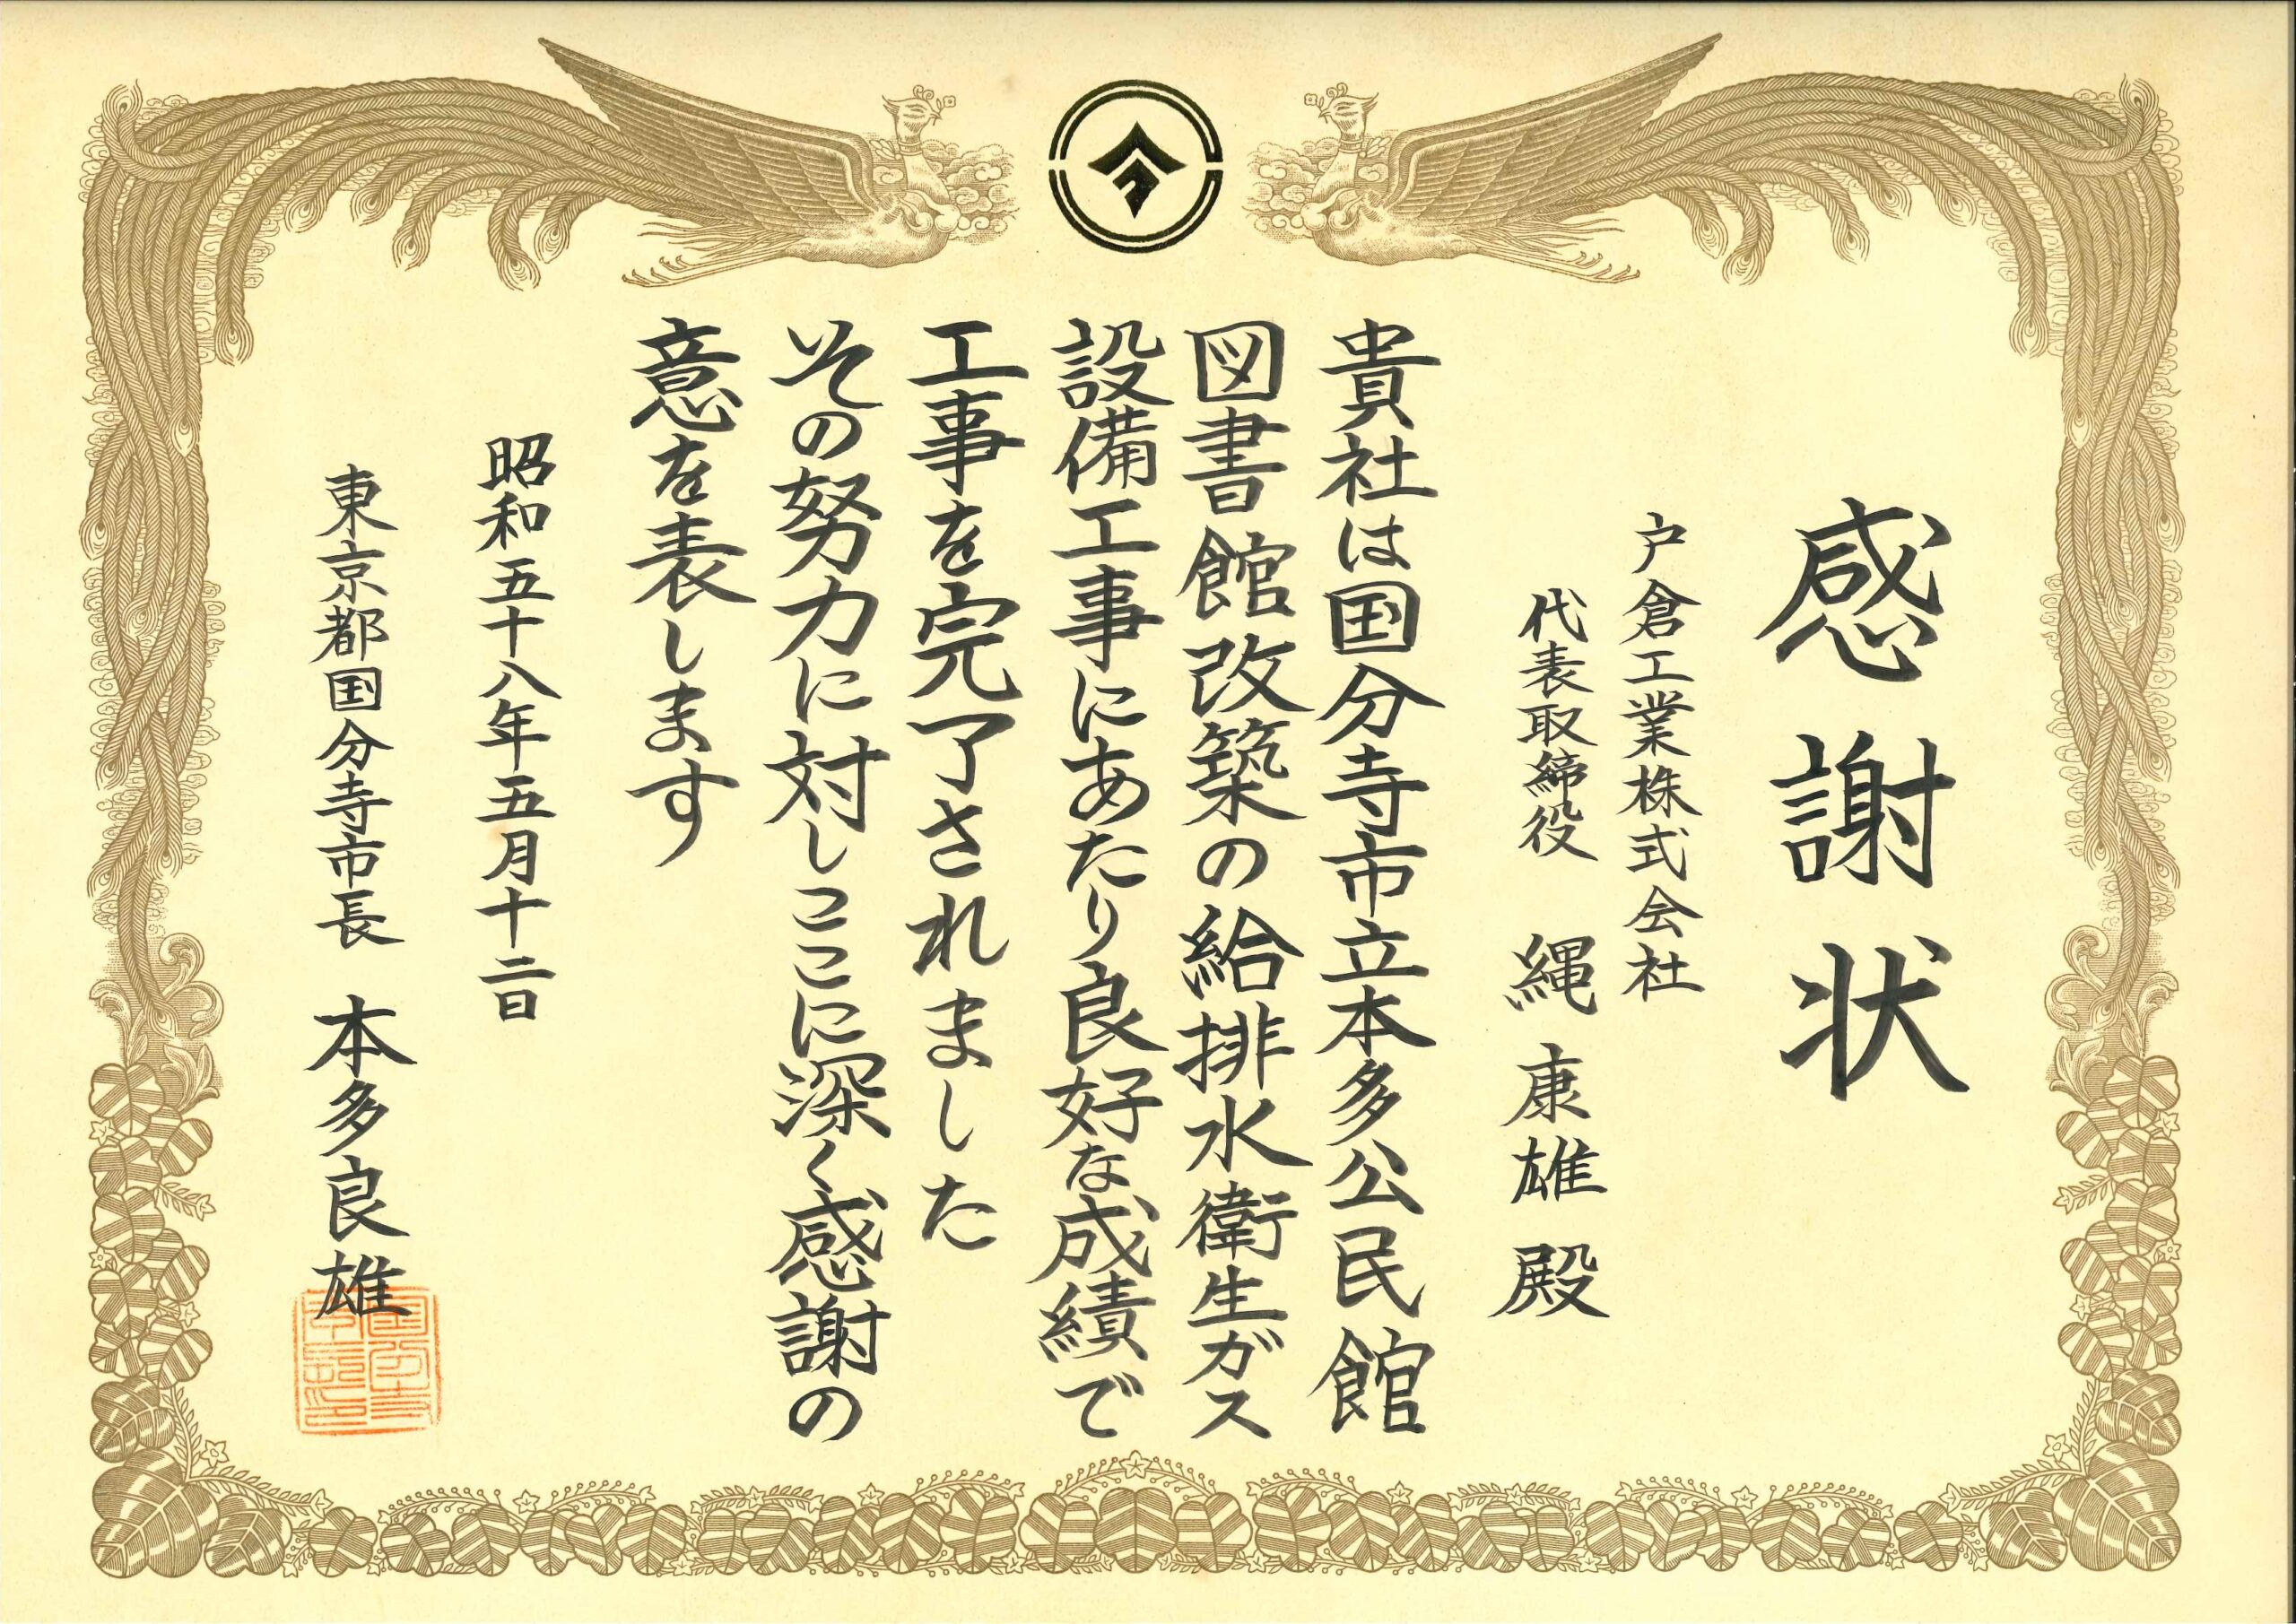 感謝状
戸倉工業株式会社
代表取締役 縄康雄殿
貴社は国分寺市立本多公民館
図書館改築の給排水衛生ガス
設備工事にあたり良好な成績で
工事を完了されました
その努力に対しここに深く感謝の
意を表します
昭和五十八年五月十二日
東京都国分寺市長 本多良雄